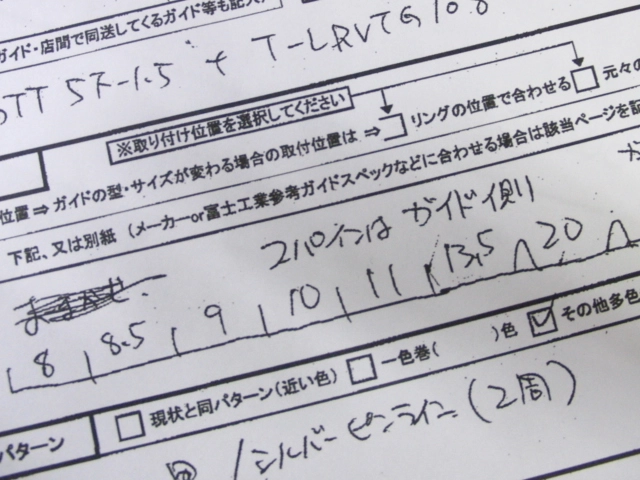 ガイド・店間で同送してくるガイド等も記入
TT 5F-1.5 + T-LRVTG10.8
※取り付け位置を選択してください
位置⇒ガイドの型・サイズが変わる場合の取付位置は ⇒ リングの位置で合わせる 元々の
下記、又は別紙 (メーカーor富士工業参考ガイドスペックなどに合わせる場合は該当ページを記
スパインは ガイド側
8 8.5 9 10 11 13.5 20
現状と同パターン(近い色) 一色巻( )色 その他多色
パターン
/シルバーピンライン(2周)